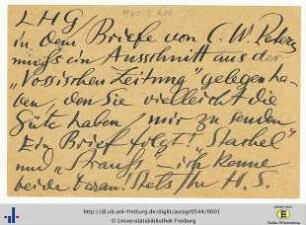 LHG
in dem Briefe von C. W. Peters
muß ein Ausschnitt aus der
„Vossischen Zeitung“ gelegen ha-
ben, den Sie vielleicht die
Güte haben, mir zu senden
Ein Brief folgt! „Stachel“
und „Strauß“ – ich kenne
beide daran! Stets Ihr H. S.
http://dl.ub.uni-freiburg.de/diglit/autogr0544/0001
© Universitätsbibliothek Freiburg